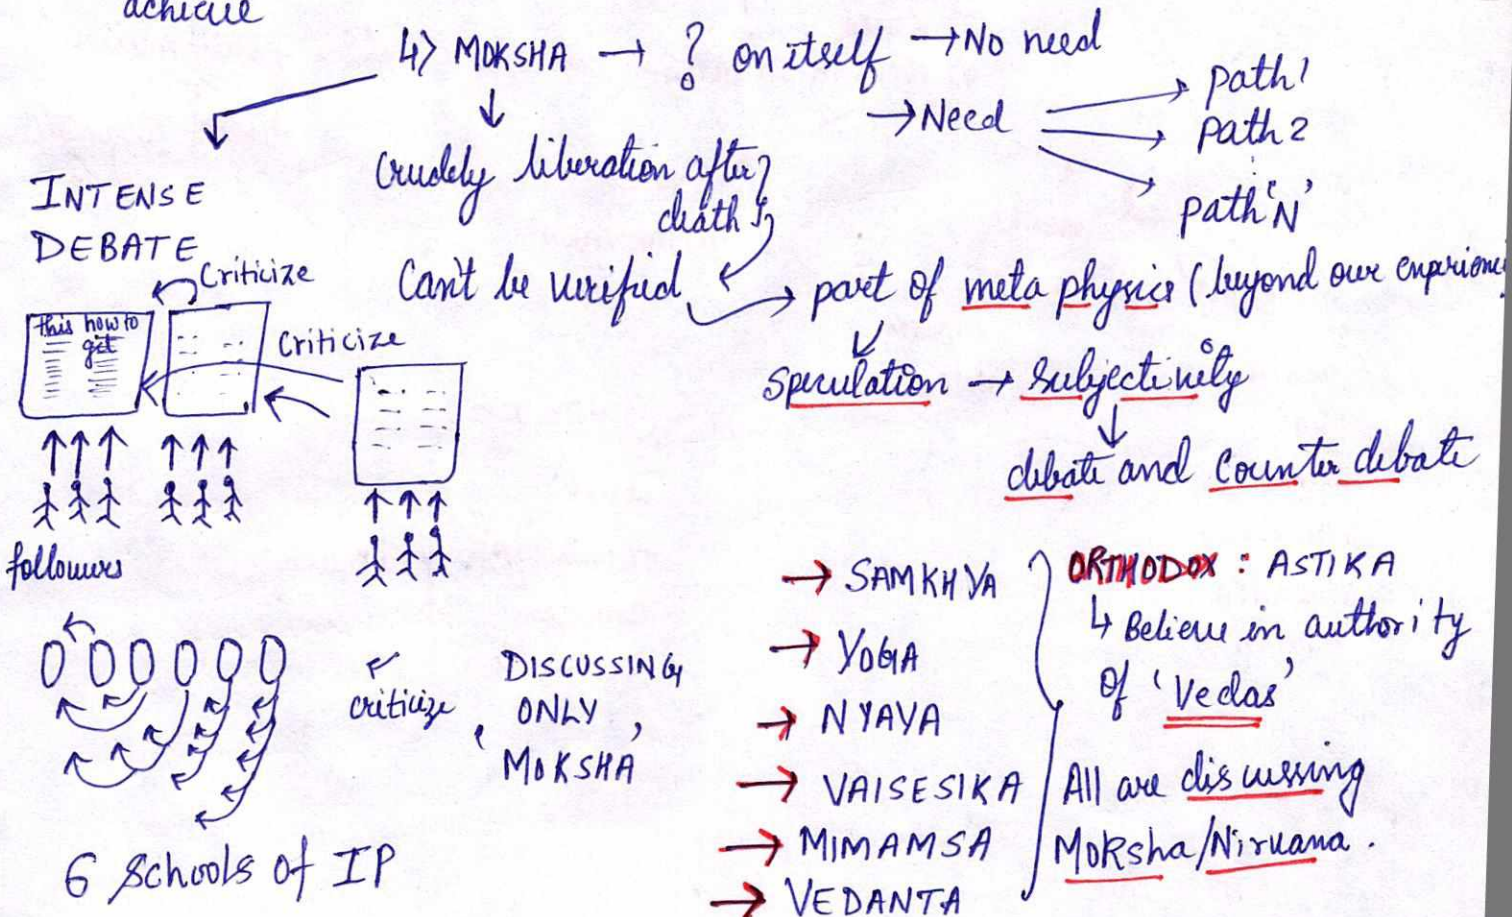 achieve
4> MOKSHA → ? on itself → No need
→ Need
Path 1
Path 2
Path 'N'
Crudely liberation after
death
INTENSE
DEBATE
Can't be verified
→ part of meta physics (beyond our
Speculation → Subjectivity
debate and Counter debate
Criticize
this how to
get
Criticize
followers
criticize
' DISCUSSING
ONLY '
MOKSHA
6 Schools of IP
→ SAMKHYA
→ YOGA
→ NYAYA
→ VAISESIKA
→ MIMAMSA
→ VEDANTA
ORTHODOX : ASTIKA
↳ Believe in authority
of 'Vedas'
All are discussing
Moksha/Nirvana .